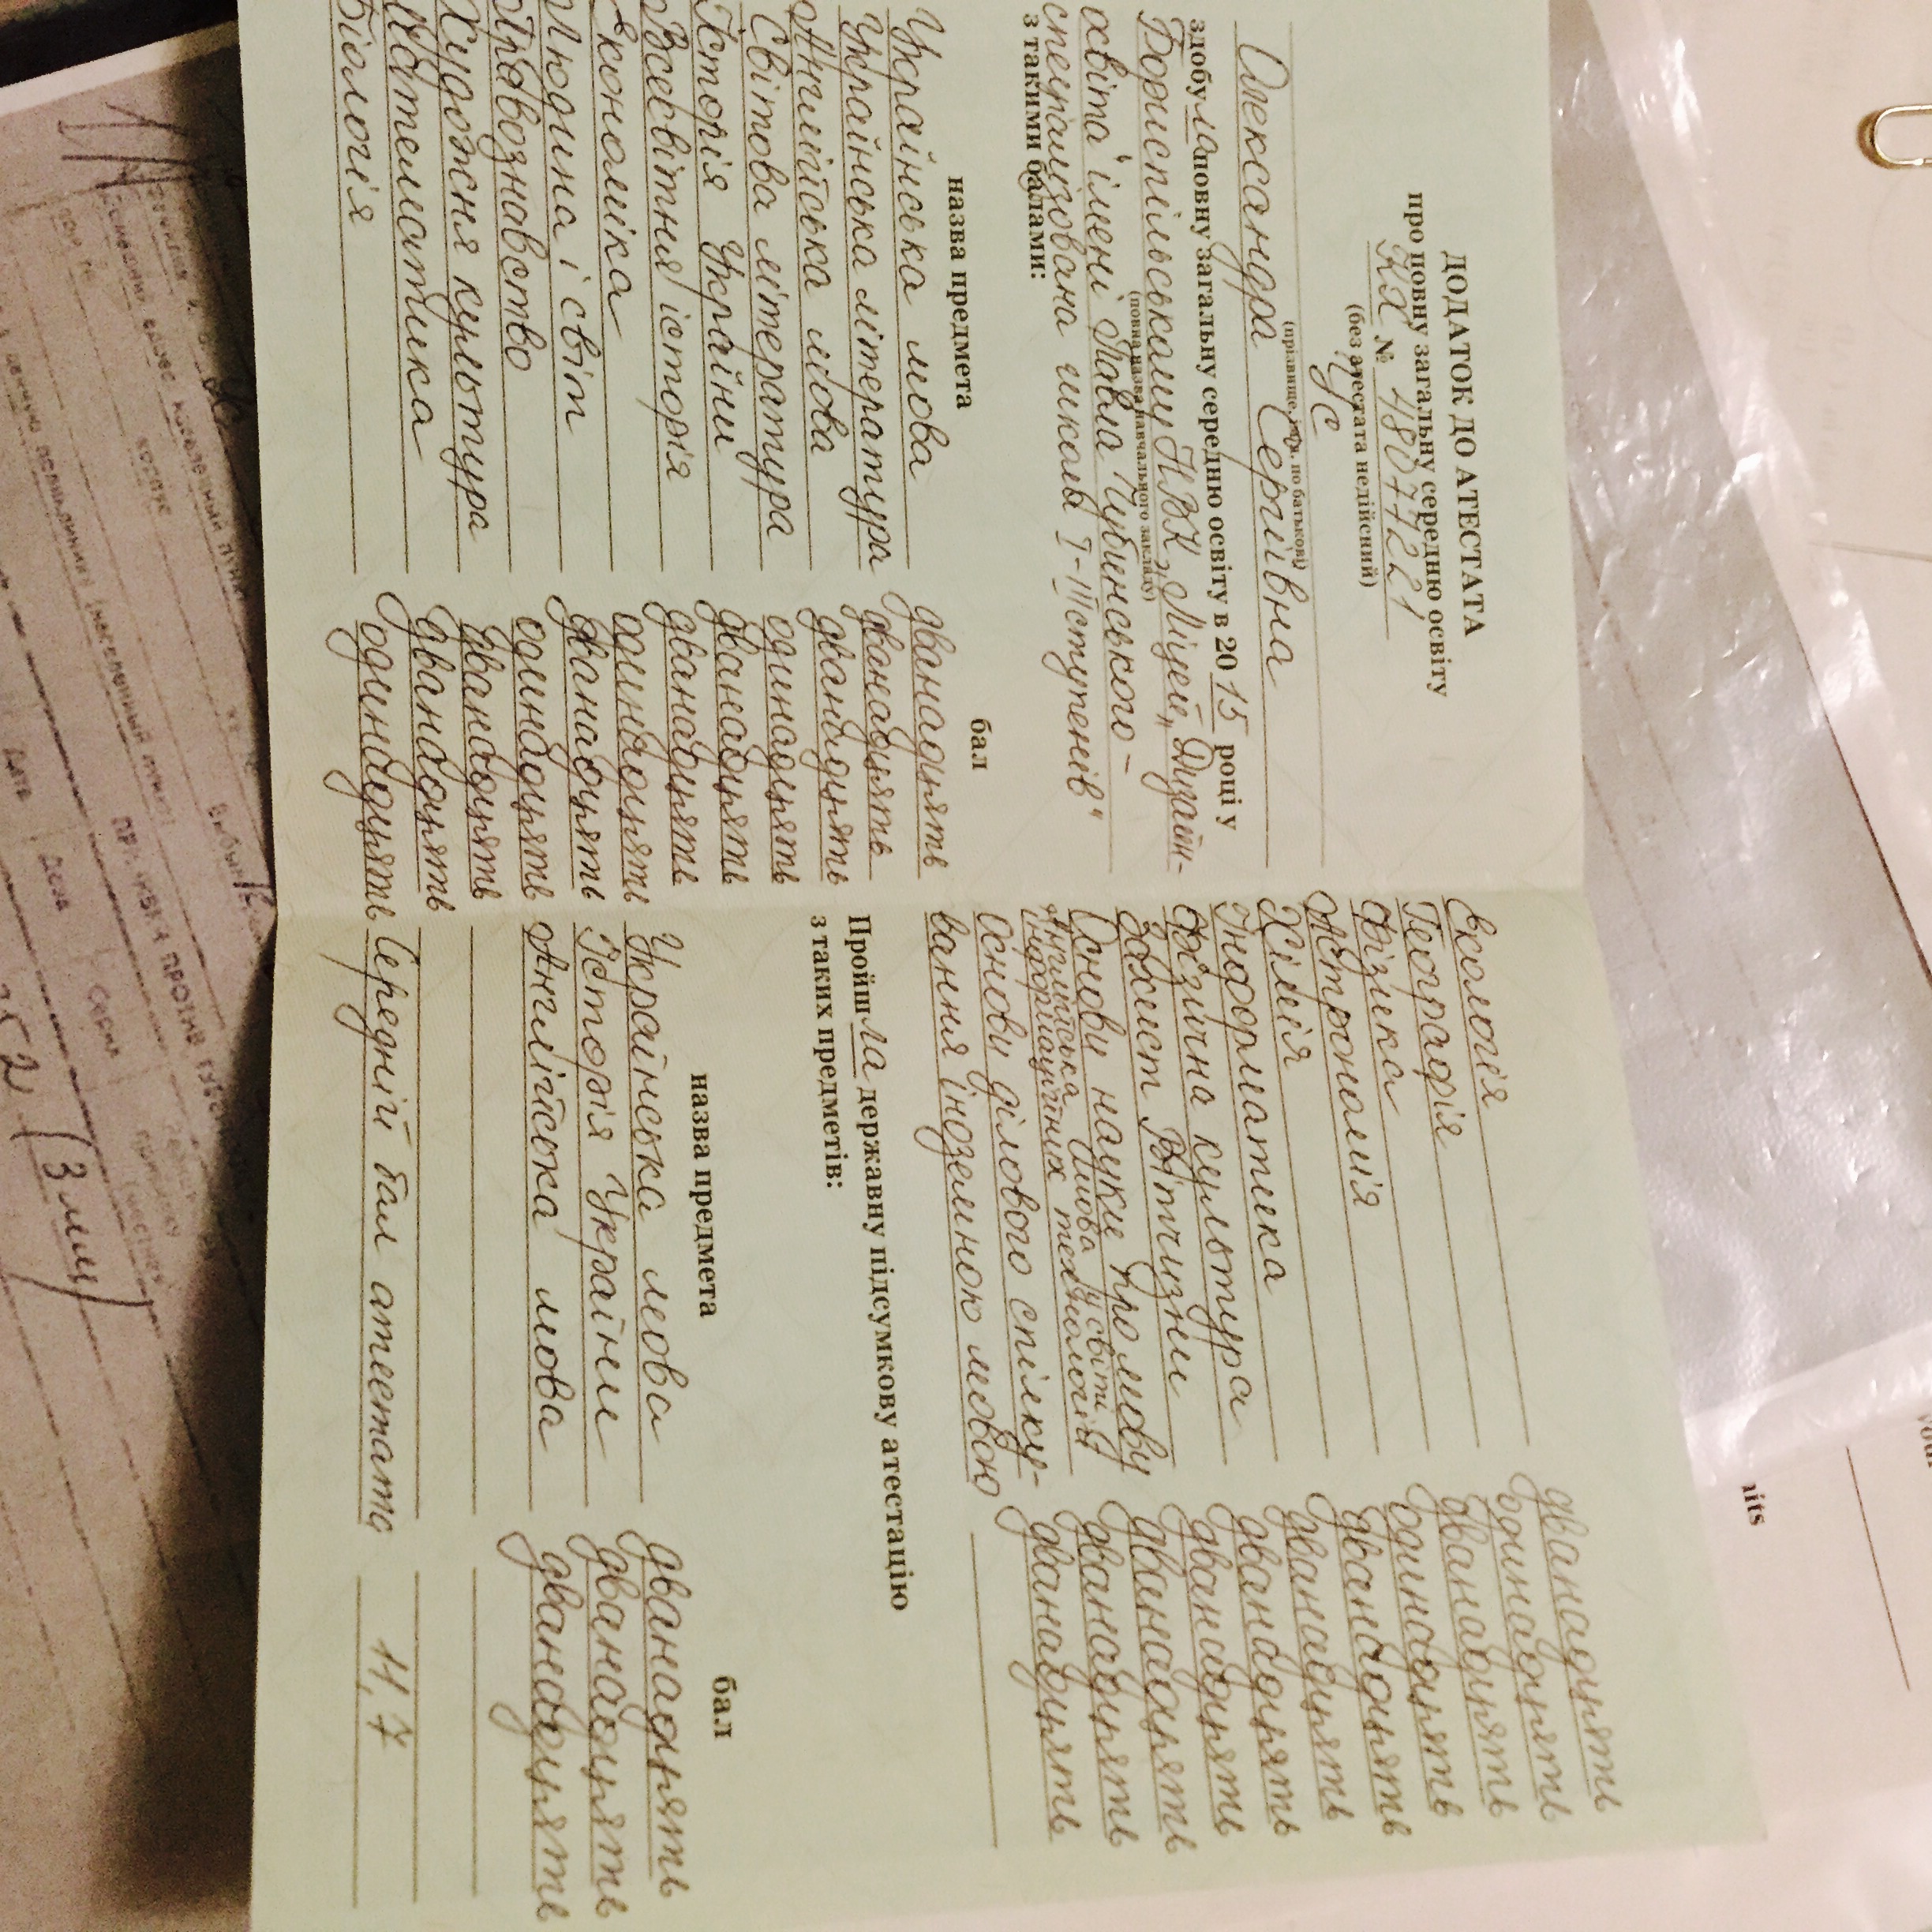 ДОДАТОК ДО АТЕСТАТА
про повну загальну середню освіту
КХ № 48077221
(без атестата недійсний)
Ус
(прізвище, ім'я, по батькові)
Олександра Сергіївна
здобула повну загальну середню освіту в 2015 році у
Бориспільському НВК „Ліцей „Дизайн-
(повна назва навчального закладу)
освіта" імені Павла Чубинського -
спеціалізована школа І-ІІІ ступенів"
з такими балами:
назва предмета бал
Українська мова дванадцять
Українська література дванадцять
Англійська мова дванадцять
Світова література одинадцять
Історія України дванадцять
Всесвітня історія дванадцять
Економіка одинадцять
Людина і світ дванадцять
Правознавство одинадцять
Художня культура дванадцять
Математика дванадцять
Біологія одинадцять
Екологія дванадцять
Географія одинадцять
Фізика дванадцять
Астрономія одинадцять
Хімія дванадцять
Інформатика дванадцять
Фізична культура дванадцять
Захист Вітчизни дванадцять
Основи науки про мову дванадцять
Англійська мова у світі
інформаційних технологій дванадцять
Основи ділового спілку- дванадцять
вання іноземною мовою
Пройшла державну підсумкову атестацію
з таких предметів:
назва предмета бал
Українська мова дванадцять
Історія України дванадцять
Англійська мова дванадцять
Середній бал атестата 11,7
aits
(3 мм)